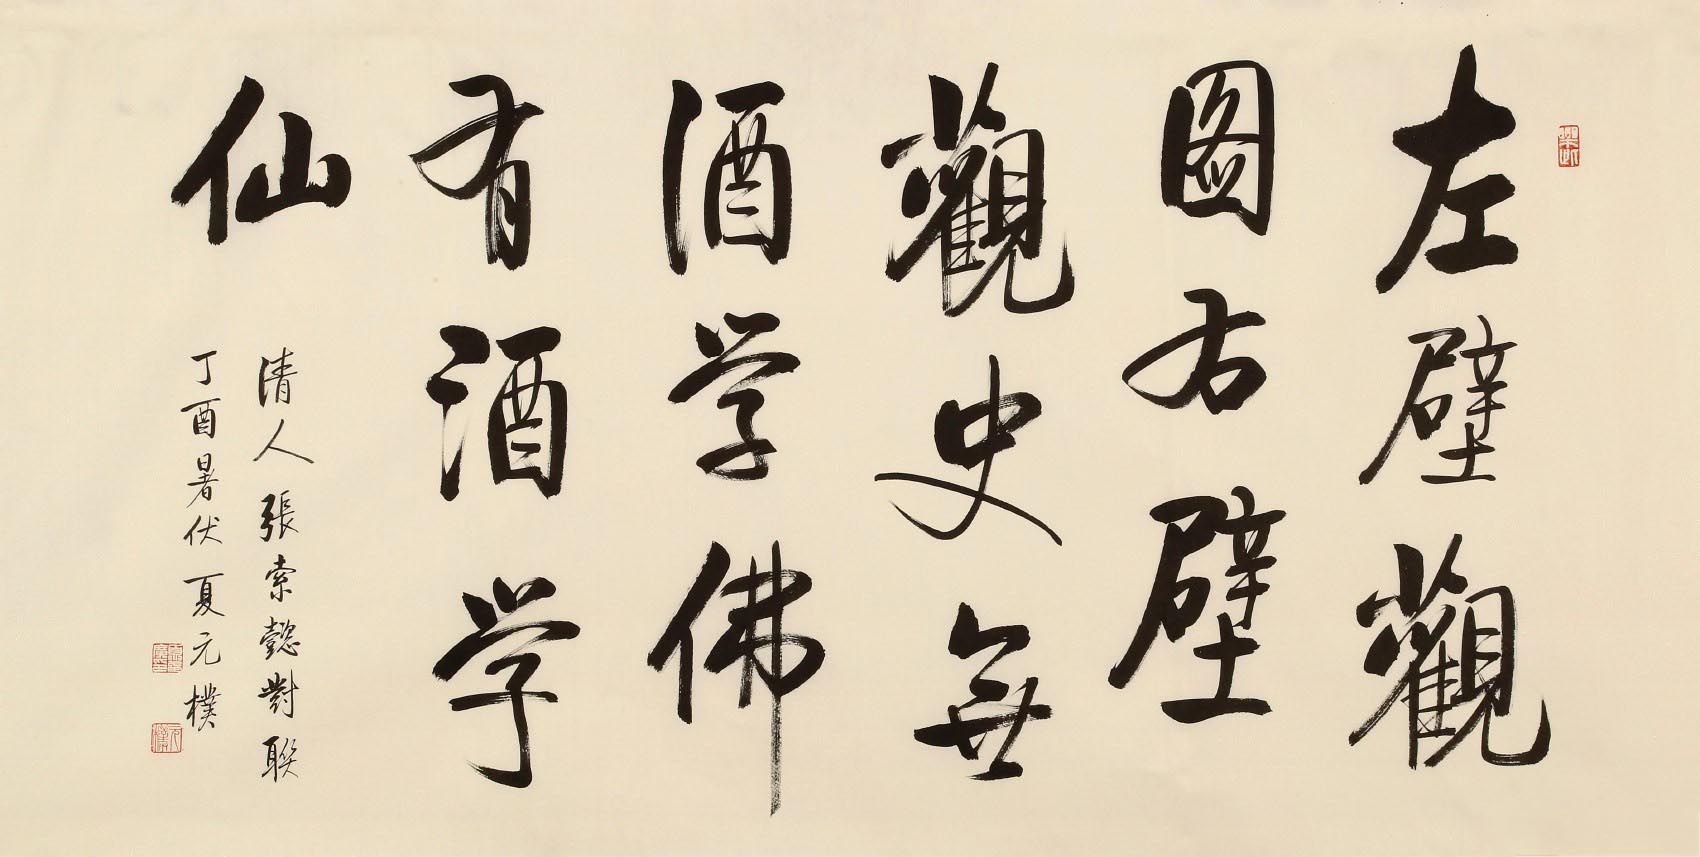 左壁觀
图右壁
觀史無
酒学佛
有酒学
仙
清人張索懿對聯
丁酉暑伏夏元樸